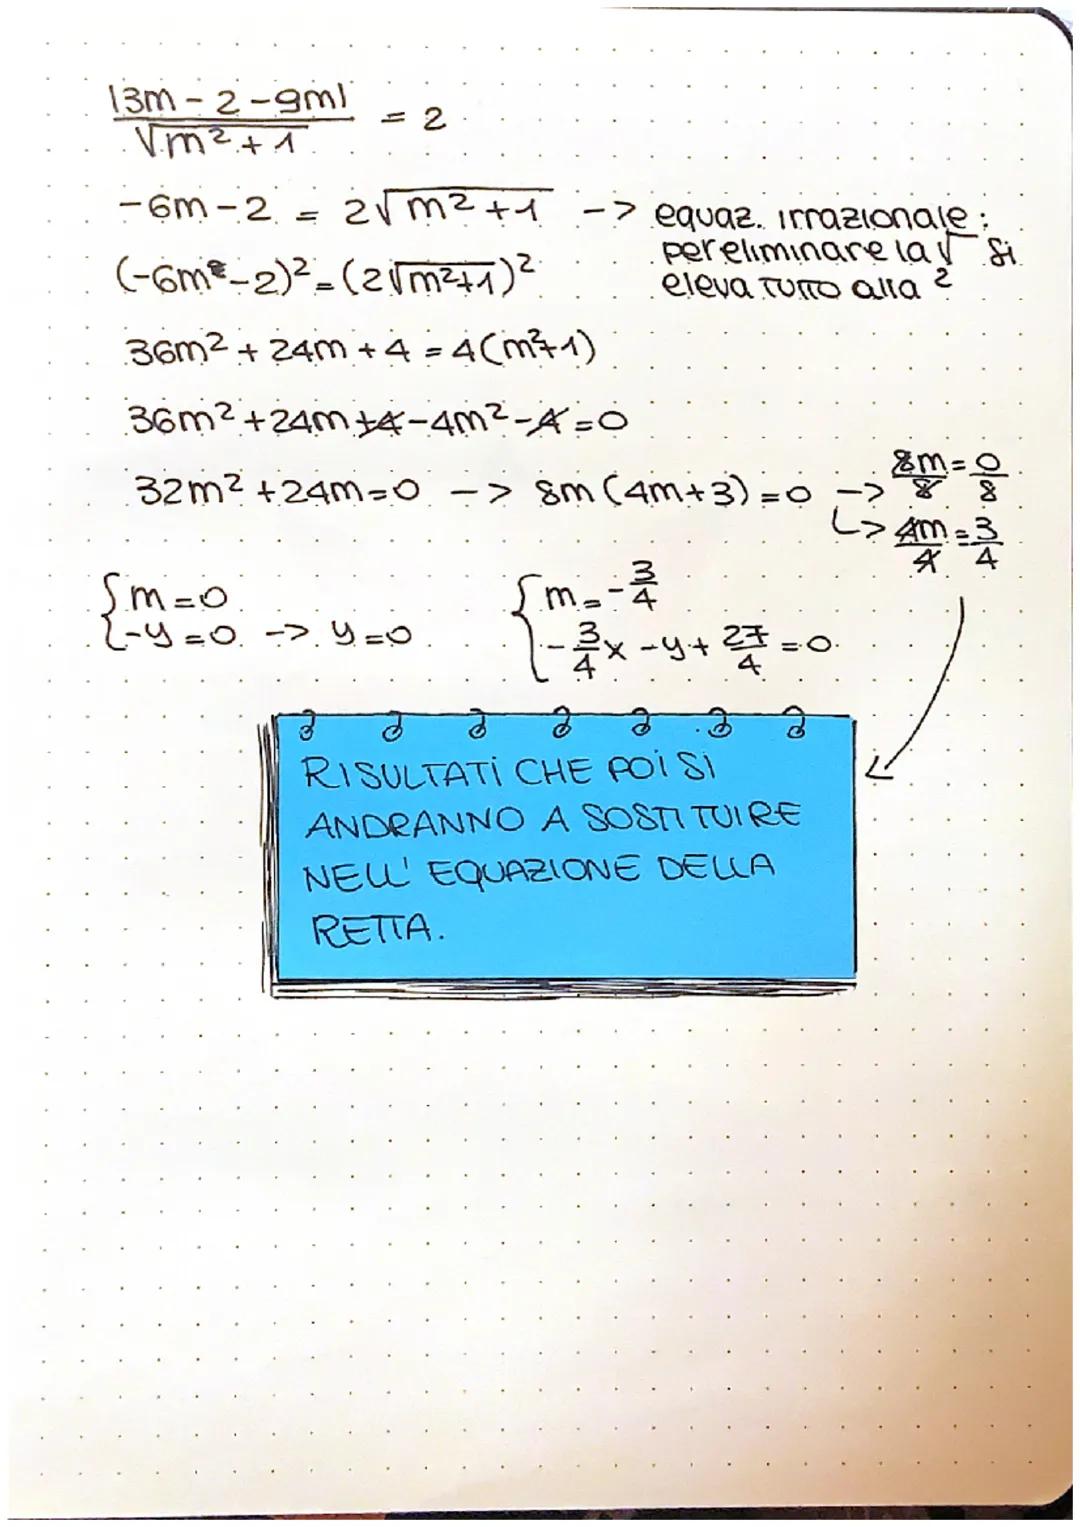 |3m - 2 - 9m| / √m² + 1 = 2
-6m - 2 = 2√m² + 1 -> equaz. irrazionale:
per eliminare la √ si
eleva tutto alla ²
(-6m - 2)² = (2√m²+1)²
36m² + 24m + 4 = 4(m²+1)
36m² + 24m + 4 - 4m² - 4 = 0
32m² + 24m = 0 -> 8m (4m + 3) = 0 -> 8m/8 = 0/8
↳ 4m/4 = 3/4
{ m = 0
-y = 0 -> y = 0
{ m = -3/4
-3/4 x - y + 27/4 = 0
RISULTATI CHE POI SI
ANDRANNO A SOSTITUIRE
NELL' EQUAZIONE DELLA
RETTA.